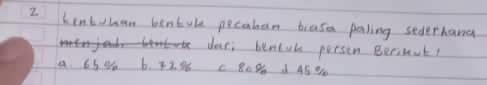 2 Tentukan bentuk pecahan biasa paling sederhana
menjadi bentuk dari bentuk persen Berikut!
a. 65% b. 72% c 80% d 45%